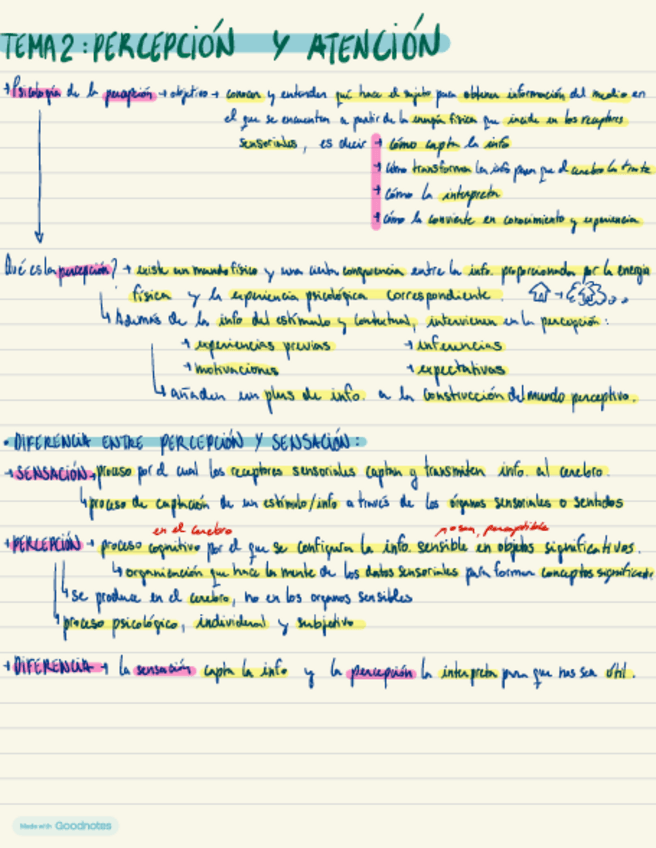 TEMA 2: PERCEPCIÓN Y ATENCIÓN
→ Psicología de la percepción → objetivo → conocer y entender qué hace el sujeto para obtener información del medio en
el que se encuentra a partir de la energía física que incide en los receptores
sensoriales, es decir → cómo capta la info
→ cómo transforma la info para que el cerebro la trate
→ cómo la interpreta
→ cómo la convierte en conocimiento y experiencia
Qué es la percepción? → existe un mundo físico y una cierta congruencia entre la info. proporcionada por la energía
física y la experiencia psicológica correspondiente.
↳ Además de la info del estímulo y contextual, intervienen en la percepción:
→ experiencias previas → inferencias
→ motivaciones → expectativas
↳ añaden un plus de info. a la construcción del mundo perceptivo.
• DIFERENCIA ENTRE PERCEPCIÓN Y SENSACIÓN:
→ SENSACIÓN → proceso por el cual los receptores sensoriales captan y transmiten info. al cerebro.
↳ proceso de captación de un estímulo/info a través de los órganos sensoriales o sentidos
en el cerebro → o sea, perceptible
→ PERCEPCIÓN → proceso cognitivo por el que se configura la info. sensible en objetos significativos.
↳ organización que hace la mente de los datos sensoriales para formar conceptos
↳ se produce en el cerebro, no en los organos sensibles
↳ proceso psicológico, individual y subjetivo
→ DIFERENCIA → la sensación capta la info y la percepción la interpreta para que nos sea útil.
Made with Goodnotes